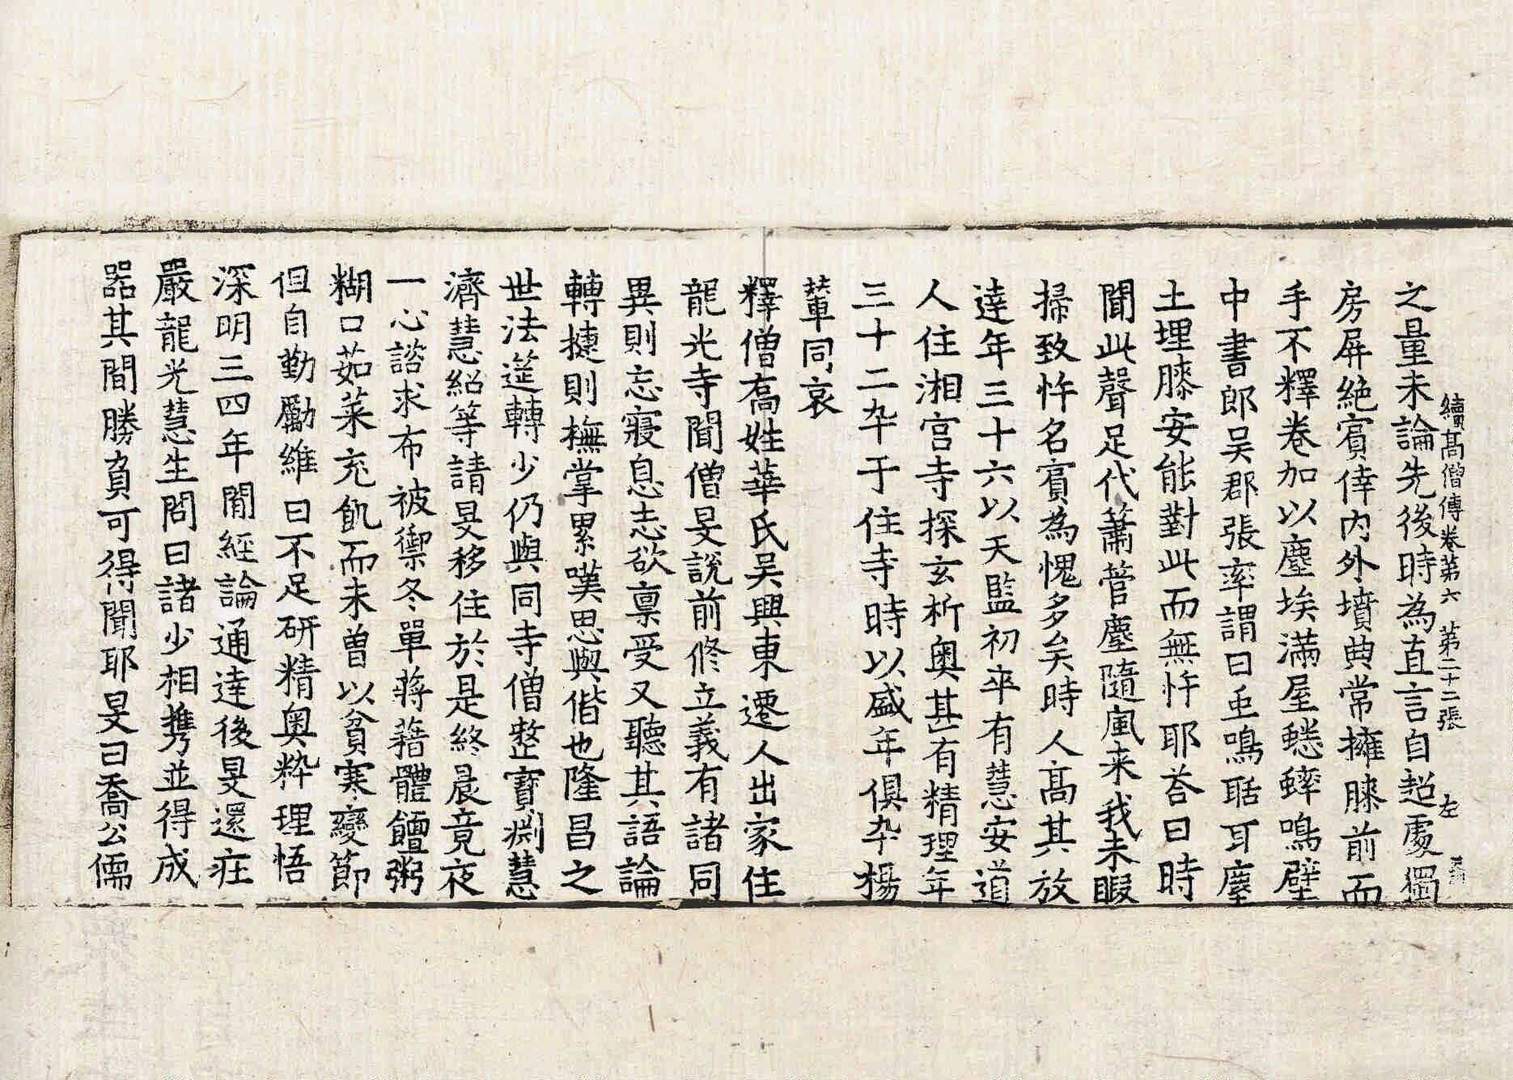 續高僧傳卷第六 第二十二張 左
之量未論先後時為直言自超處獨
房屏絶賓侟内外墳典常擁膝前而
手不釋卷加以塵埃滿屋蟋蟀鳴壁
中書郎吳郡張率謂曰虫鳴聒耳塵
土埋膝安能對此而無忤耶荅曰時
聞此聲足代簫管塵隨風来我未暇
掃致忤名賓為愧多矣時人髙其放
逹年三十六以天監初卒有慧安道
人住湘宫寺探玄析奥甚有精理年
三十二卒于住寺時以盛年俱卒楊
輦同哀
釋僧喬姓華氏吳興東遷人出家住
龍光寺聞僧旻說前修立義有諸同
異則忘寢息志欲稟受又聽其語論
轉揵則撫掌累嘆思與偕也隆昌之
世法筵轉少仍與同寺僧整寳渊慧
濟慧紹等請旻移住於是終晨竟夜
一心諮求布被禦冬單蔣藉體饘粥
糊口茹菜充飢而未曽以貧寒變節
但自勤勵維日不足研精奥粋理悟
深明三四年閒經論通逹後旻還疰
嚴龍光慧生問曰諸少相携並得成
器其間勝負可得聞耶旻曰喬公儒